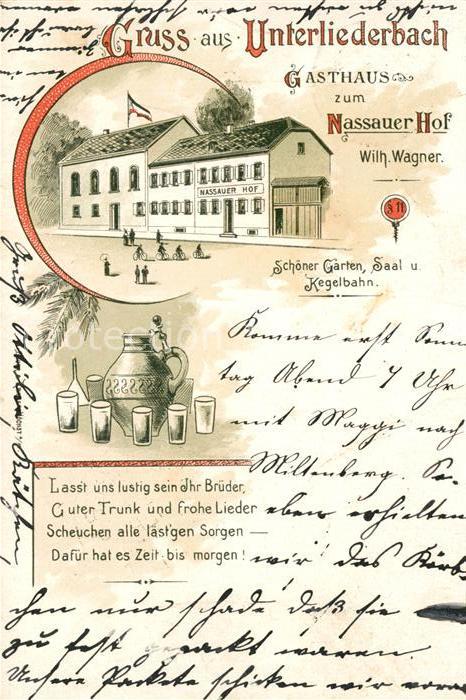 Gruss aus Unterliederbach
GASTHAUS
zum
Nassauer Hof
Wilh. Wagner.
§ 11
NASSAUER HOF
Schöner Garten, Saal u.
Kegelbahn.
Komme erst Sonn
tag Abend 7 Uhr
mit Maggi nach
Miltenberg. So-
eben erhielten
wir das Körb
chen nur schade daß sie
zu fest gepackt waren.
Unsere Packete schicken wir voraus
Lasst uns lustig sein Ihr Brüder,
Guter Trunk und frohe Lieder
Scheuchen alle läst'gen Sorgen —
Dafür hat es Zeit bis morgen!
Gruß